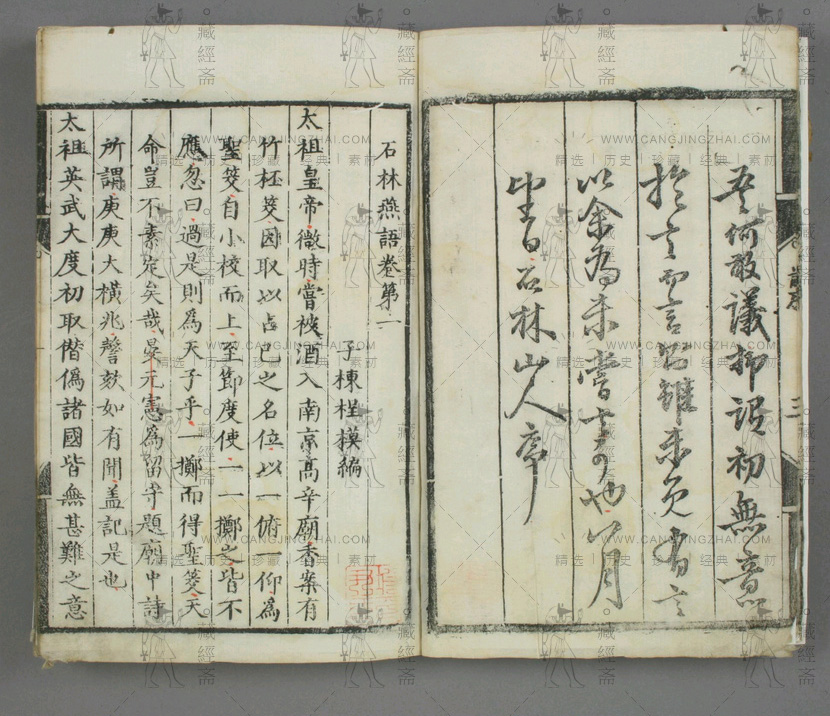 吾何敢議抑謂初無意
於言而言則雖未免有言
以余為未嘗言可也八月
望日石林山人序
序
三
石林燕語卷第一
子棟桯模編
太祖皇帝微時嘗被酒入南京高辛廟香案有
竹柸筊因取以占己之名位以一俯一仰為
聖筊自小校而上至節度使一一擲之皆不
應忽曰過是則為天子乎一擲而得聖筊天
命豈不素定矣哉晏元憲為留守題廟中詩
所謂庚庚大橫兆謦欬如有聞蓋記是也
太祖英武大度初取僭偽諸國皆無甚難之意
藏經斋
WWW.CANGJINGZHAI.COM
精选 | 历史 | 珍藏 | 经典 | 素材